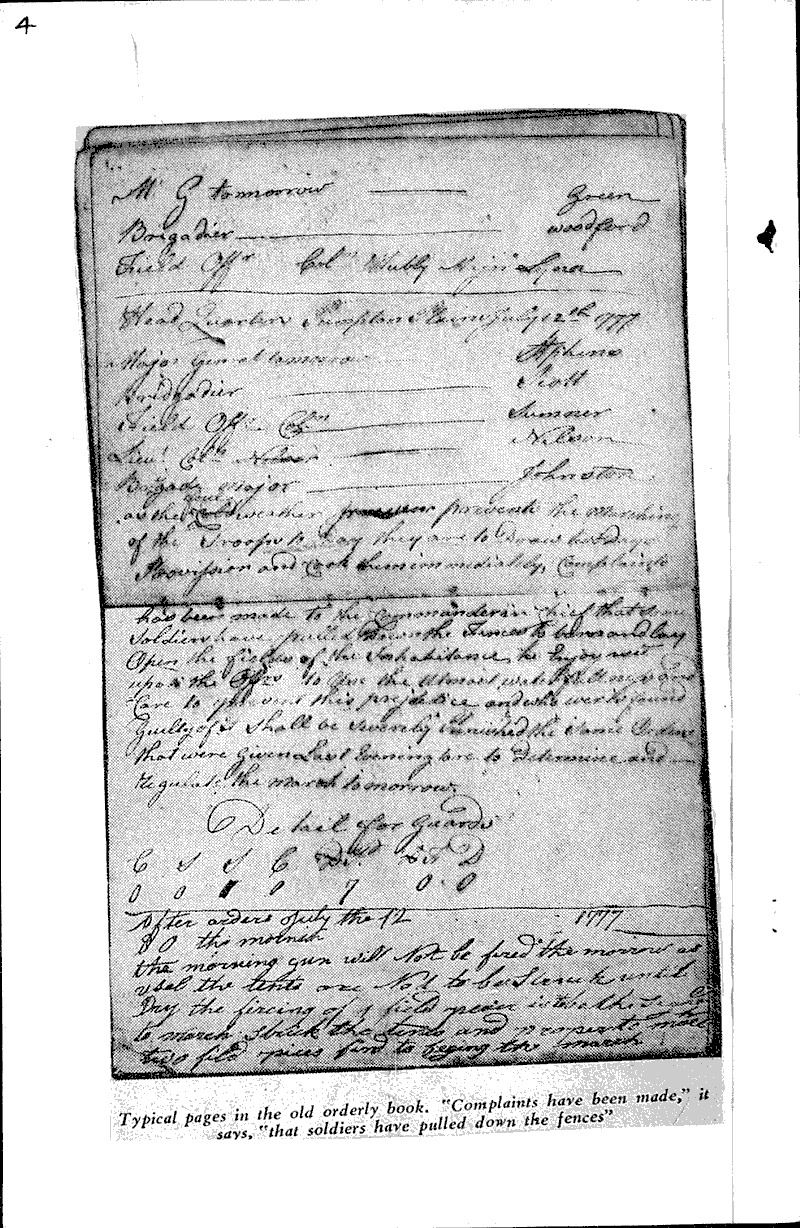 4
M G tomorrow Green
Brigadier woodford
Field Offr Coln Majr
Head Quarters Plains July 12th 1777
Major Genral tomorrow Stphens
Bridgadier Scott
Field Offrs Coln Sumner
Lieut Coln Nelson
Brigade Major Johnston
as the weather prevents the Marching
of the Troops to Day they are to Draw two Days
Provission and Cook immediatly, Complaints
has been made to the Commander in Chief that some
Soldiers have pulled down the Fences to burn and lay
Open the fields of the Inhabitance, he
upon the Offrs to Use the Utmost and
Care to prevent this prejdice and who will be found
Guilty of it Shall be Severely Punished the Same Orders
that were Given Last Evening are to determine and
regulate the march tomorrow.
Detail for Guards
C S S C D
0 0 1 0 7 0 0
After orders July the 12 1777
the morning gun will Not be fired the morrow as
usel the tents are Not to be Struck until
Dry the fireing of 1 field peice is to be the
to march strick the tents and prepare to
two fild pices fird to beging the march
Typical pages in the old orderly book. "Complaints have been made," it
says, "that soldiers have pulled down the fences"